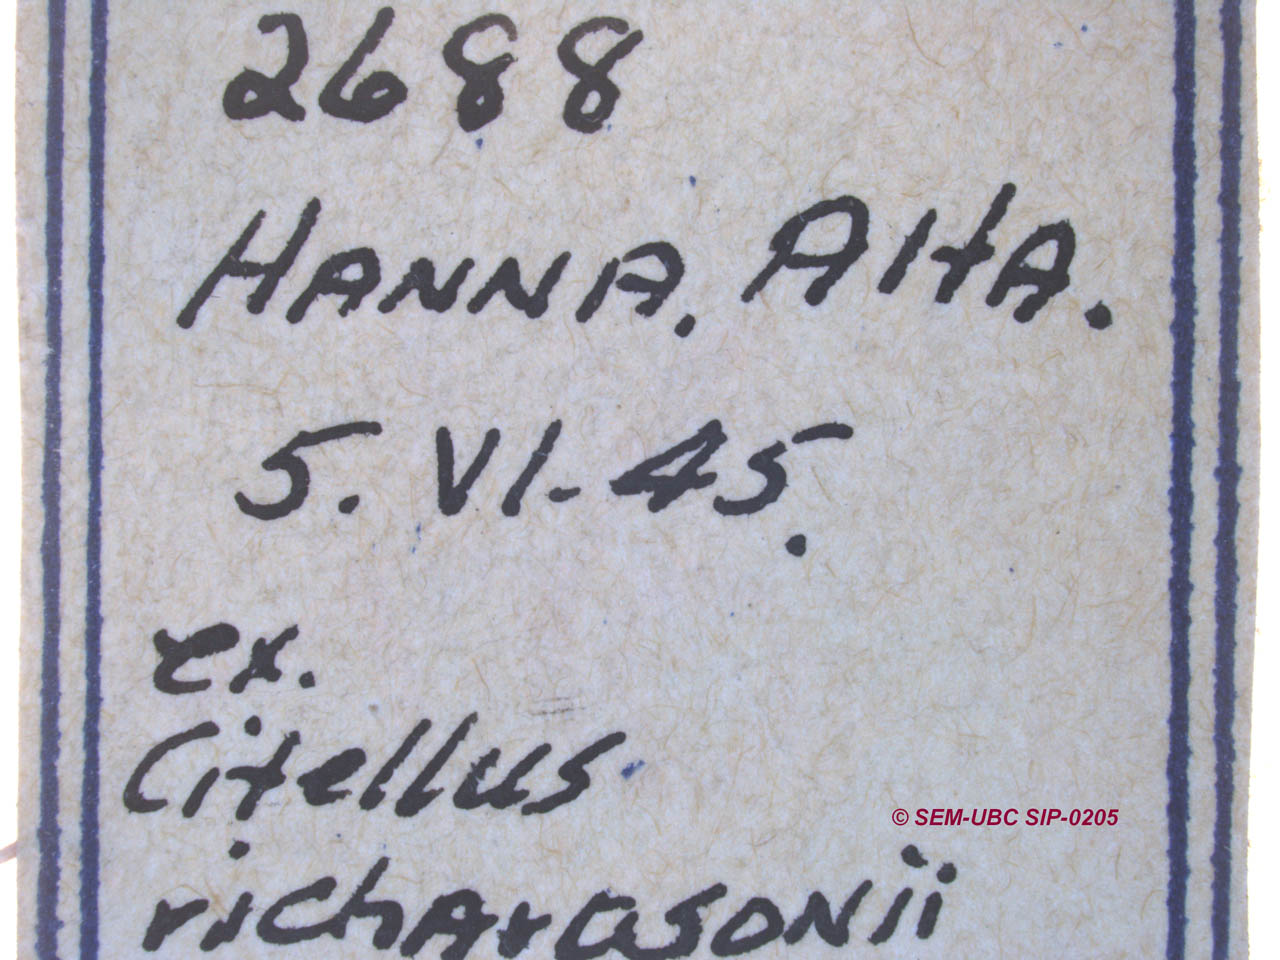 2688
HANNA, AltA.
5. VI-45.
ex.
Citellus
© SEM-UBC SIP-0205
richardsonii